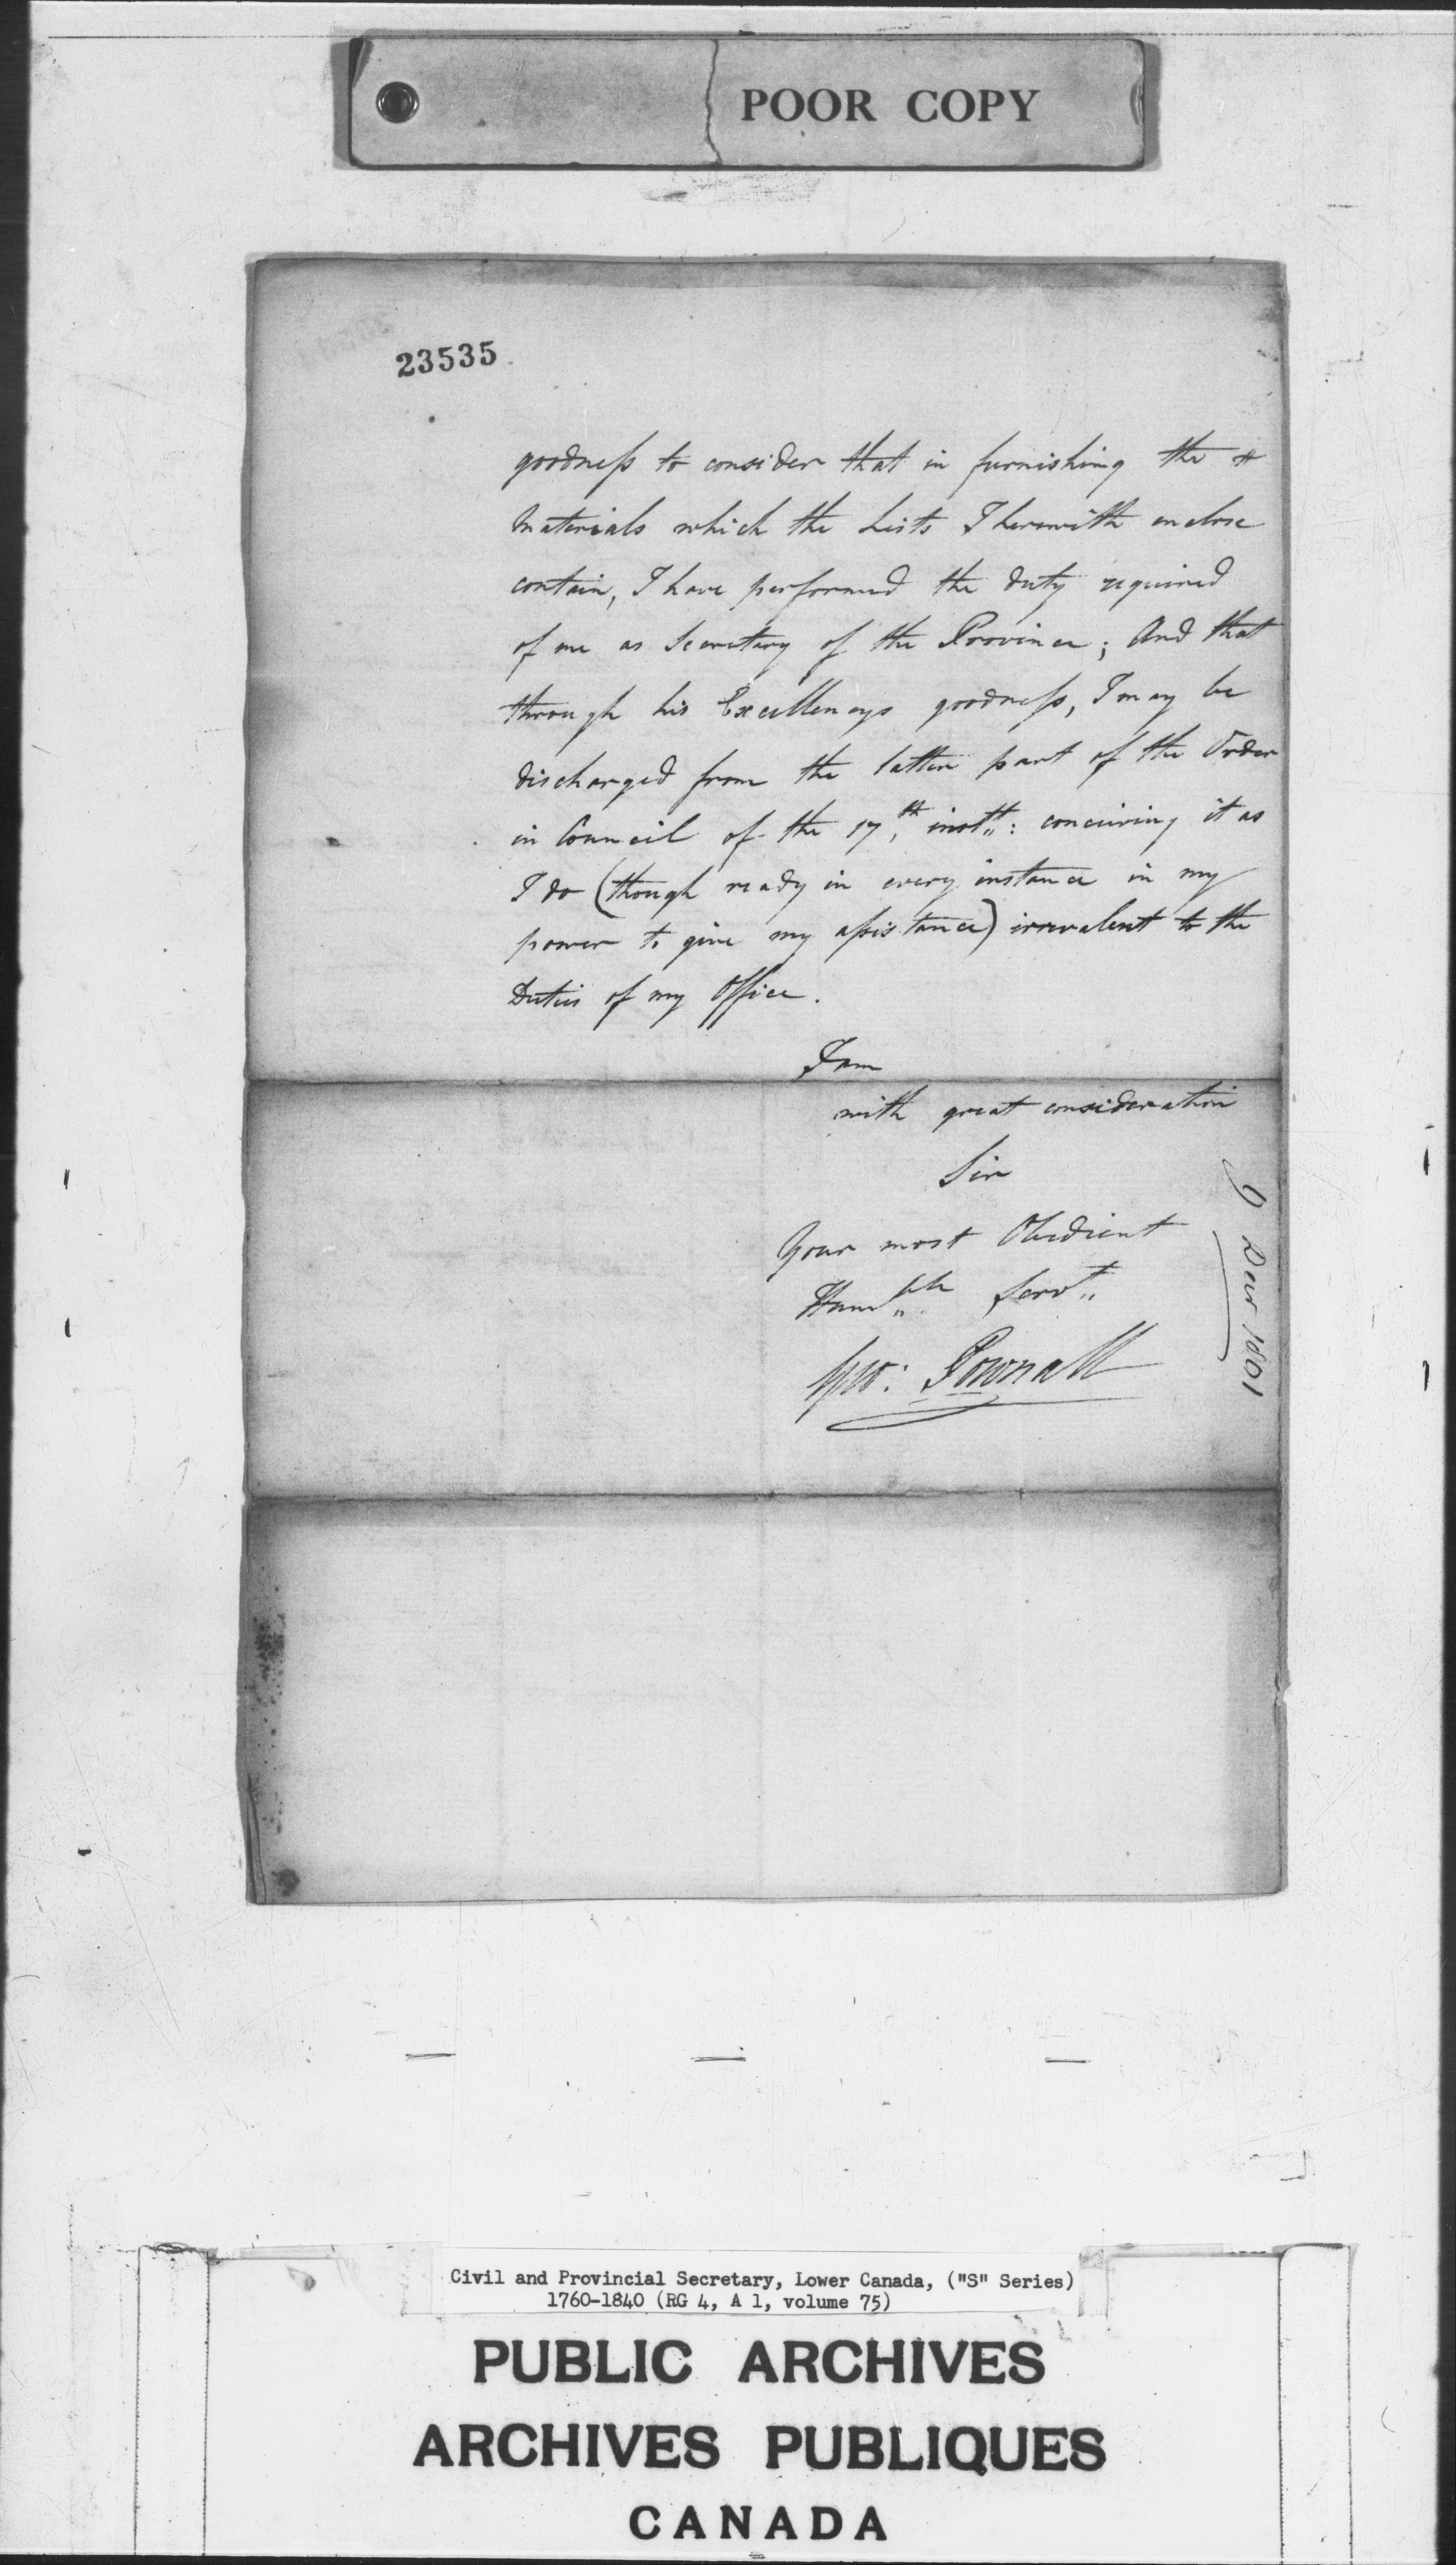 POOR COPY
23535
goodness to consider that in furnishing the
Materials which the Lists I herewith enclose
contain, I have performed the duty required
of me as Secretary of the Province; And that
through his Excellencys goodness, I may be
discharged from the latter part of the Order
in Council of the 17th instt: conceiving it as
I do (though ready in every instance in my
power to give my assistance) irrevalent to the
Duties of my Office.
I am
with great consideration
Sir
Your most Obedient
Humble Servt
Geo: Pownall
9 Decr 1801
Civil and Provincial Secretary, Lower Canada, ("S" Series)
1760-1840 (RG 4, A 1, volume 75)
PUBLIC ARCHIVES
ARCHIVES PUBLIQUES
CANADA